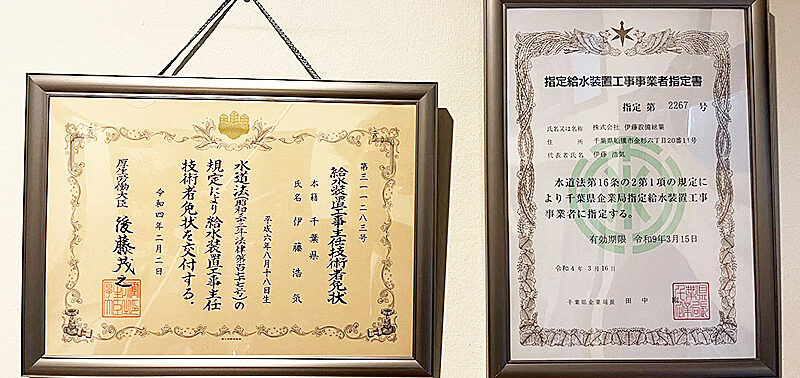 第三一一二八三号
給水装置工事主任技術者免状
本籍 千葉県
氏名 伊藤浩気
平成六年八月十八日生
水道法(昭和三十二年法律第百七十七号)の
規定により給水装置工事主任
技術者免状を交付する。
令和四年二月二日
厚生労働大臣 後藤茂之
指定給水装置工事事業者指定書
指定 第 2267 号
氏名又は名称 株式会社 伊藤設備総業
住所 千葉県船橋市金杉六丁目20番11号
代表者氏名 伊藤 浩気
水道法第16条の2第1項の規定に
より千葉県企業局指定給水装置工事
事業者に指定する。
有効期限 令和9年3月15日
令和4年3月16日
千葉県企業局長 田中